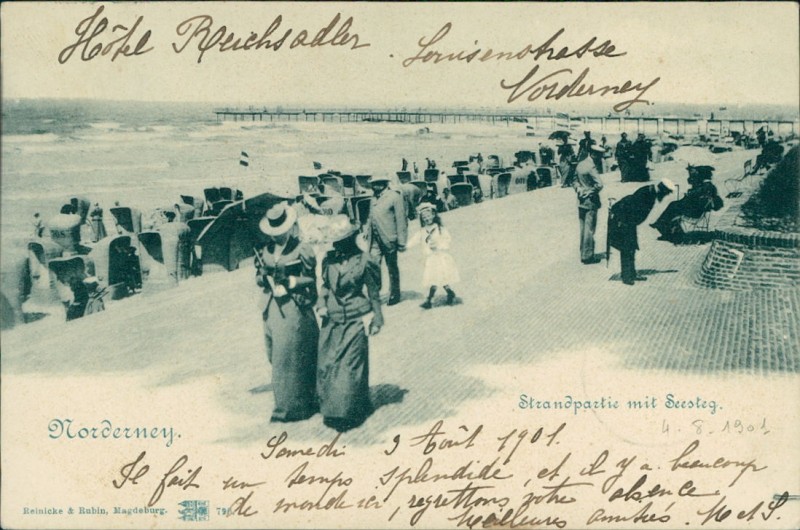 Hôtel Reichsadler. Louisenstrasse
Norderney
Strandpartie mit Seesteg.
4.8.1901
Norderney.
Samedi 3 Août 1901.
Il fait un temps splendide, et il y a beaucoup
de monde ici, regrettons votre absence
Meilleures amitiés. M et S.
Reinicke & Rubin, Magdeburg.